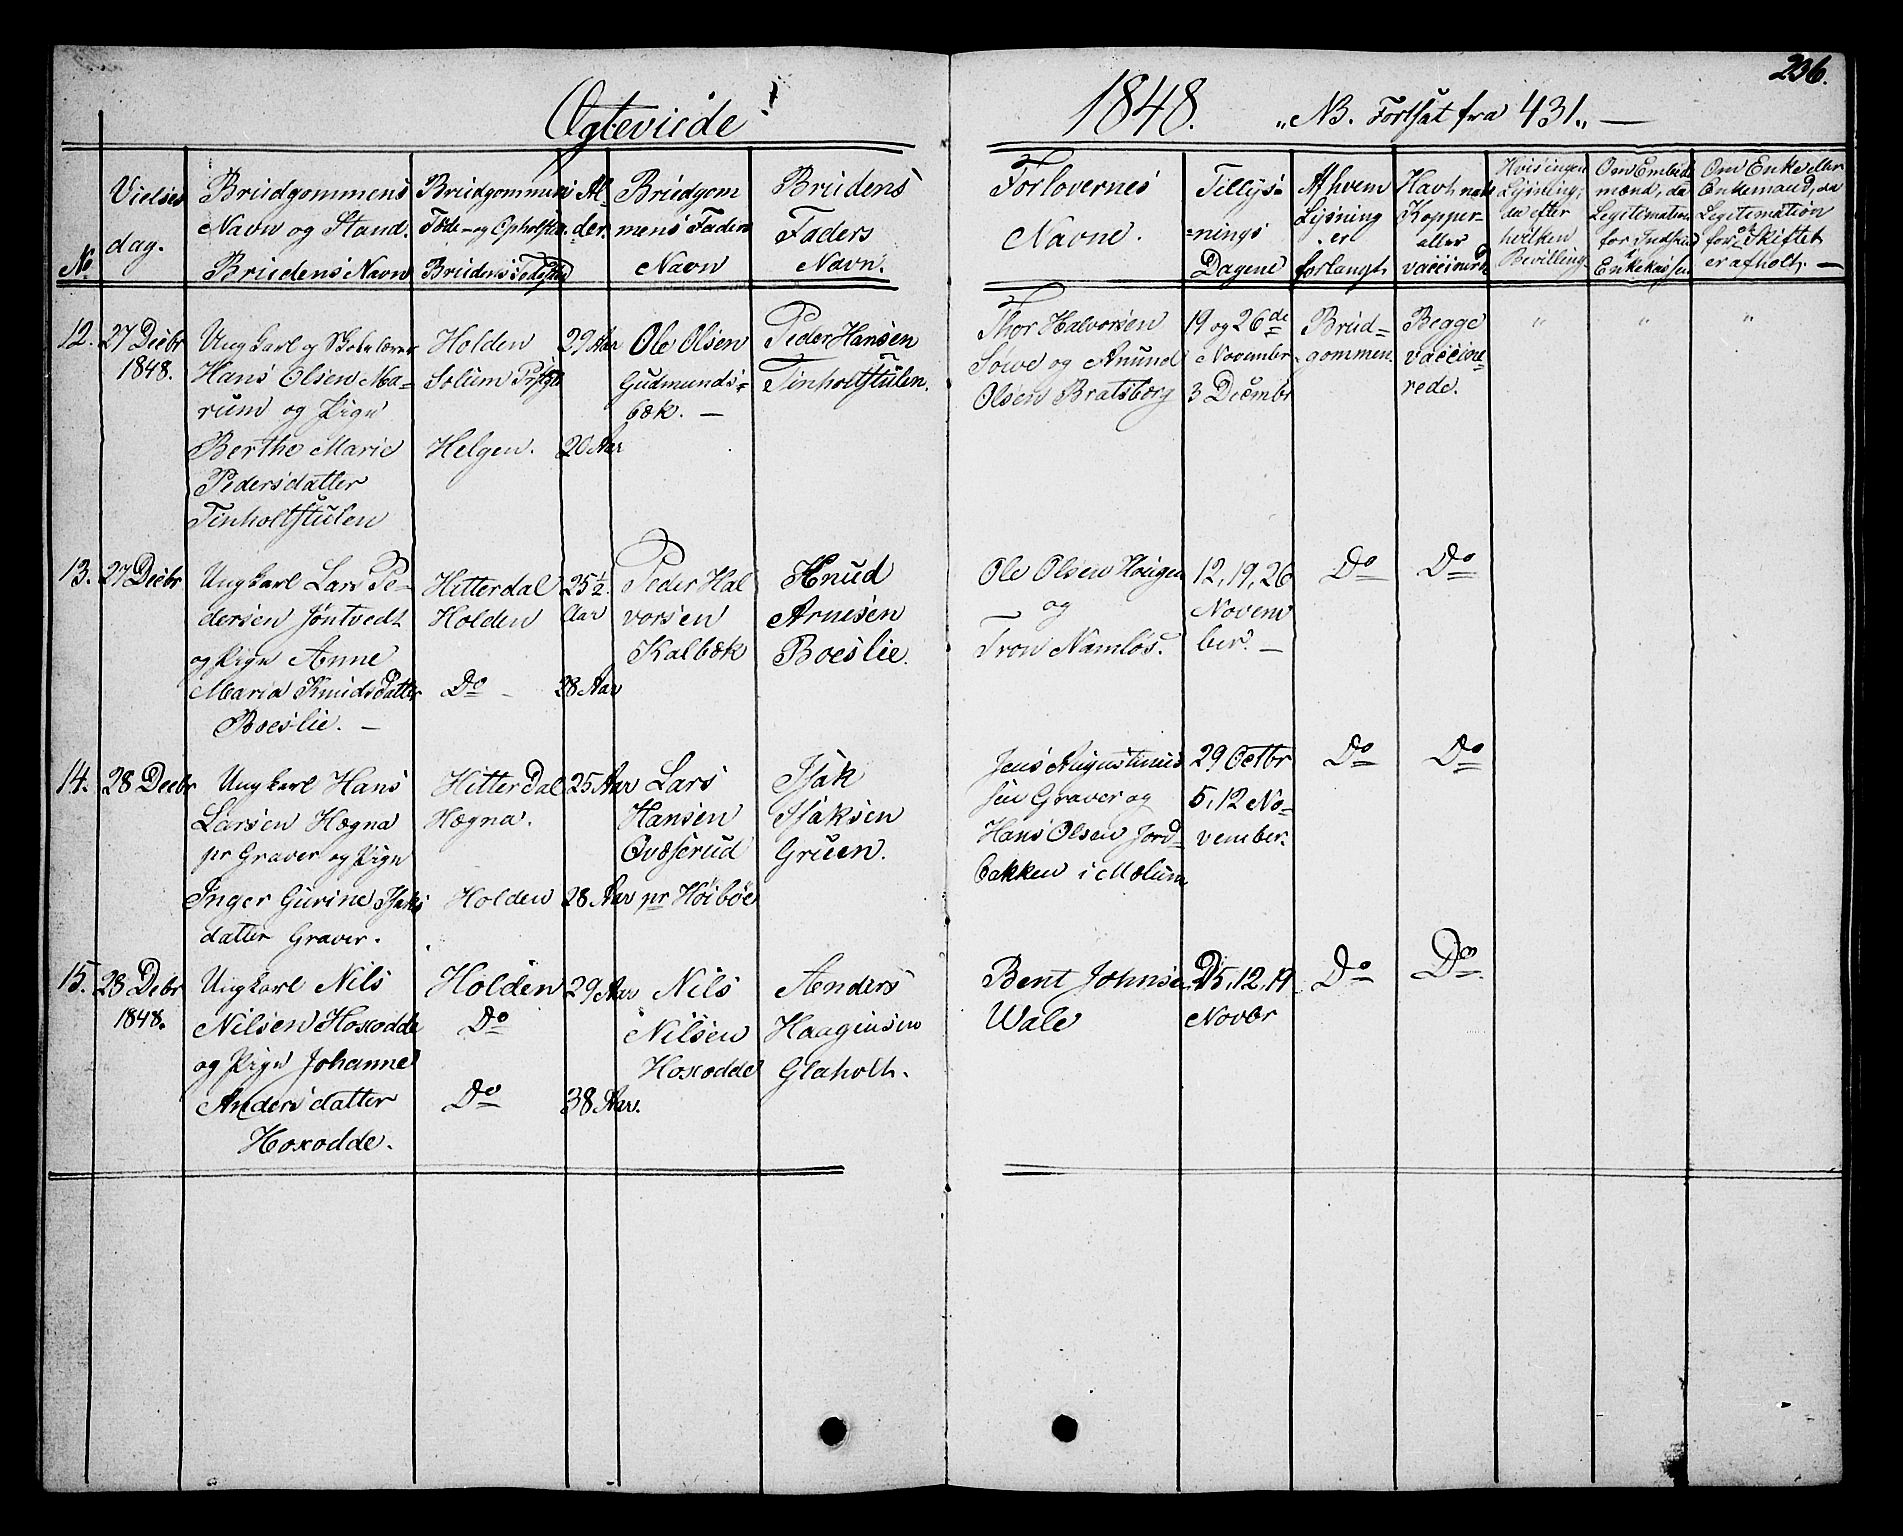 236.
Ægteviede
1848. „NB. Fortsat fra 431„ —
No
Vielses
dag.
Brudgommens
Navn og Stand.
Brudens Navn
Brudgommens
Føde- og Opholsted
Brudens Fødested
Al-
der.
Brudgom
mens Faders
Navn
Brudens
Faders
Navn.
Forlovernes
Navne.
Tillys=
=nings
Dagene
Af hvem
Lysning
er
forlangt
Havt nat.
Kopper
eller
vaccinerede
Hvis ingen
Lysning,
da efter
hvilken
Bevilling
Om Embeds
mænd, da
Legitimation
for Indskud
i Enkekassen
Om Enke eller
Enkemand, da
Legitimation
for at Skiftet
er afholt. —
12.
27 Decbr
1848.
Ungkarl og Skolelærer
Hans Olsen Ma-
rum og Pige
Berthe Marie
Pedersdatter
Tinholtstulen
Holden
Solum Prstgd
Helgen.
29 Aar
20 Aar
Ole Olsen
Gudmunds=
bæk. —
Peder Hansen
Tinholtstulen.
Thor Halvorsen
Sowe og Anund
Olsen Bratsberg
19 og 26de
November
3 Decembr
Brud=
gommen.
Begge
vaccine=
rede.
"
"
"
13.
27 Decbr
Ungkarl Lars Pe-
dersen Jøntvedt
og Pige Anne
Maria Knudsdatter
Boeslie. —
Hitterdal
Holden
Do —
25½
Aar
38 Aar
Peder Hal
vorsen
Kalbæk
Knud
Arnesen
Boeslie.
Ole Olsen Haugen
og
Tron Namløs.
12, 19, 26
Novem
ber. —
Do
Do
14.
28 Decbr
Ungkarl Hans
Larsen Hægna
pr Graver og Pige
Inger Gurine Isaks
datter Graver.
Hitterdal
Hægna.
Holden
25 Aar
28 Aar
Lars
Hansen
Qvæserud
pr Høibøe
Isak
Isaksen
Gruen.
Jens Augustinus
sen Graver og
Hans Olsen Jord=
bakken i Mælum
29 Octbr
5, 12 No=
vember.
Do
Do
15.
28 Debr
1848.
Ungkarl Nils
Nilsen Hoxodde
og Pige Johanne
Andersdatter
Hoxodde.
Holden
Do
Do
29 Aar
38 Aar.
Nils
Nilsen
Hoxodde
Anders
Haagensen
Glaholt.
Bent Johnsen
Wale
5, 12, 19
Novbr
Do
Do